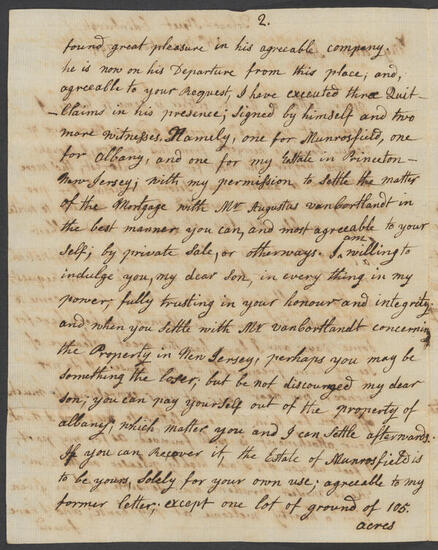 2.
found great pleasure in his agreable company.
he is now on his Departure from this place, and,
agreeable to your Request, I have executed three Quit-
-Claims in his presence; Signed by himself and two
more witnesses. Namely, one for Munrosfield, one
for Albany, and one for my Estate in Princeton-
New-Jersey; with my permission to Settle the matter
of the Mortgage with Mr Augustus vanCortlandt in
the best manner you can, and most agreeable to your
Self; by private Sale, or otherways. I am willing to
indulge you, my dear Son, in every thing in my
power, fully trusting in your honour and integrity,
and when you Settle with Mr vanCortlandt concerning
the Property in New Jersey, perhaps you may be
Something the loser, but be not discouraged my dear
Son; you can pay yourself out of the property of
albany; which matter you and I can Settle afterwards.
If you can Recover it, the Estate of Munrosfield is
to be yours, Solely for your own use; agreeable to my
former letter. except one lot of ground of 105.
acres